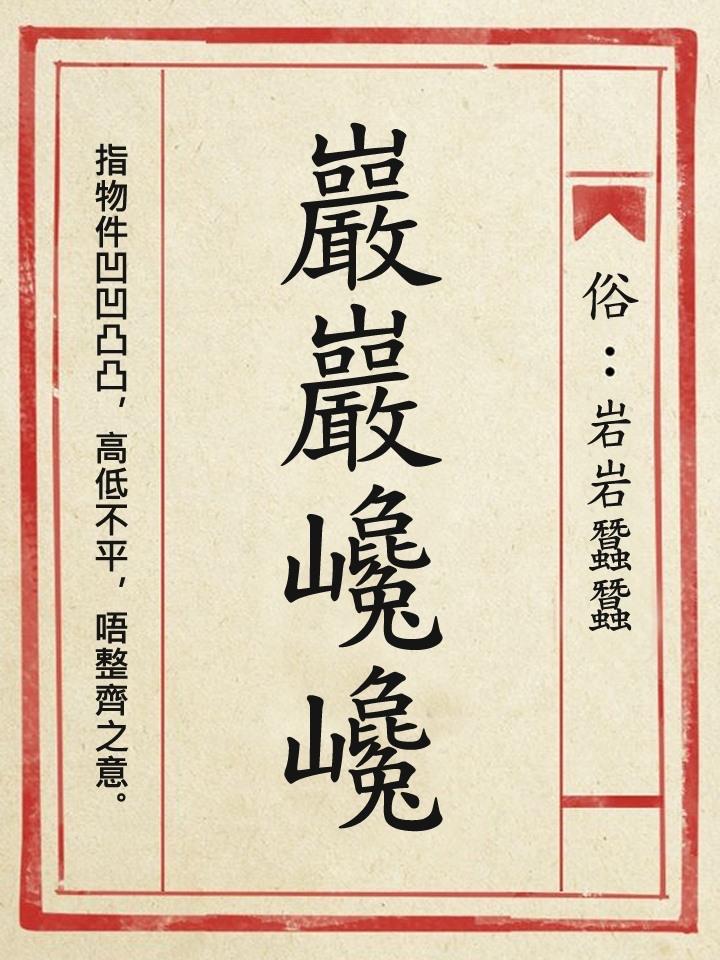 俗：岩岩蠶蠶
巖巖巉巉
指物件凹凹凸凸，高低不平，唔整齊之意。